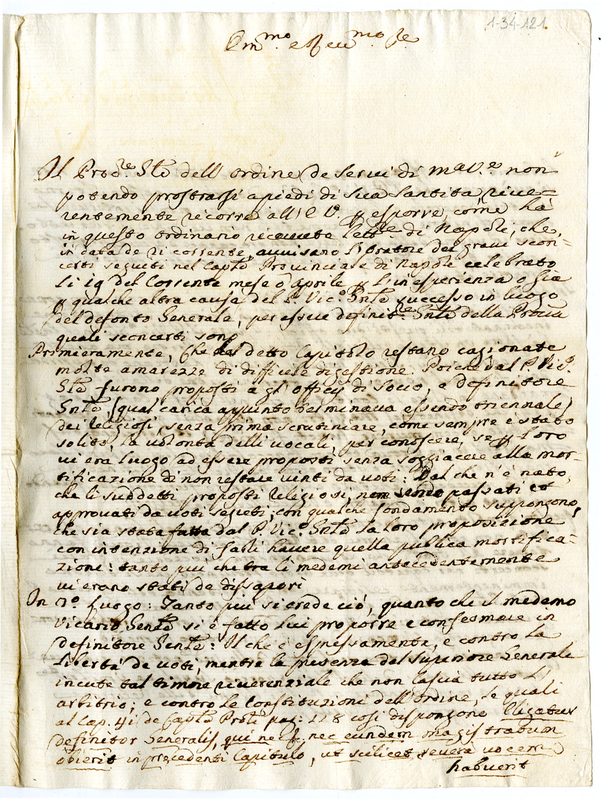 1-34-121.
Em.mo e Rev.mo Sre
Il Proc.re Gnle dell'ordine de servi di M.a V.e non
potendo prostrarsi a piedi di sua Santità river-
entemente ricorre all'E.V. p esporre, come hà
in questo ordinario ricevute lett.e di Napoli, che
in data de 21 corrente, avvisano li Oratore dei gravi scon-
certi seguiti nel Cap.lo Provinciale di Napoli celebrato
li 19 del Corrente mese d'Aprile p l'inesperienza o sia
p qualche altra causa del P. Vic.o Gnle successo in luogo
del defonto Generale, per essere definit.re Gnle della Provin.a
quali sconcerti sono
Primieramente, Che dal detto Capitolo restano cagionate
molte amarezze di difficile digestione. Poiche dal P. Vic.o
Gnle furono proposti a gli officij di Socio, e definitore
Gnle (qual carica appunto terminava essendo triennale)
dei religiosi, senza prima scrutiniare, come sempre è stato
solito, la volontà delli vocali, per conoscere, se p loro
vi era luogo ad essere proposti senza soggiacere alla mor-
tificazione di non restare vinti da voti: Dal che n'è nato,
che li suddetti proposti religiosi, non sendo passati et
approvati da voti segreti; con qualche fondamento suppongono,
che sia stata fatta dal P. Vic.o Gnle la loro proposizione
con intenzione di farli havere quella publica mortifica-
zione: tanto più che tra li medemi antecedentemente
vi erano stati de dissapori
In 2.o luogo: Tanto più si crede ciò, quanto che il medemo
Vicario Gnle si è fatto lui proporre e confermare in
definitore Gnle: Il che è espressamente, e contro la
libertà de voti, mentre la presenza del superiore Generale
incute tal timore riverenziale che non lascia tutto l'
arbitrio; e contro le Constituzioni dell'ordine, le quali
al Cap. 41 de Cap.lo Prov.li pag: 118 così dispongono Eligatur
definitor Generalis, qui nec eundem magistratum
obierit in precedenti Capitulo, ut scilicet severa vocem
habuerit